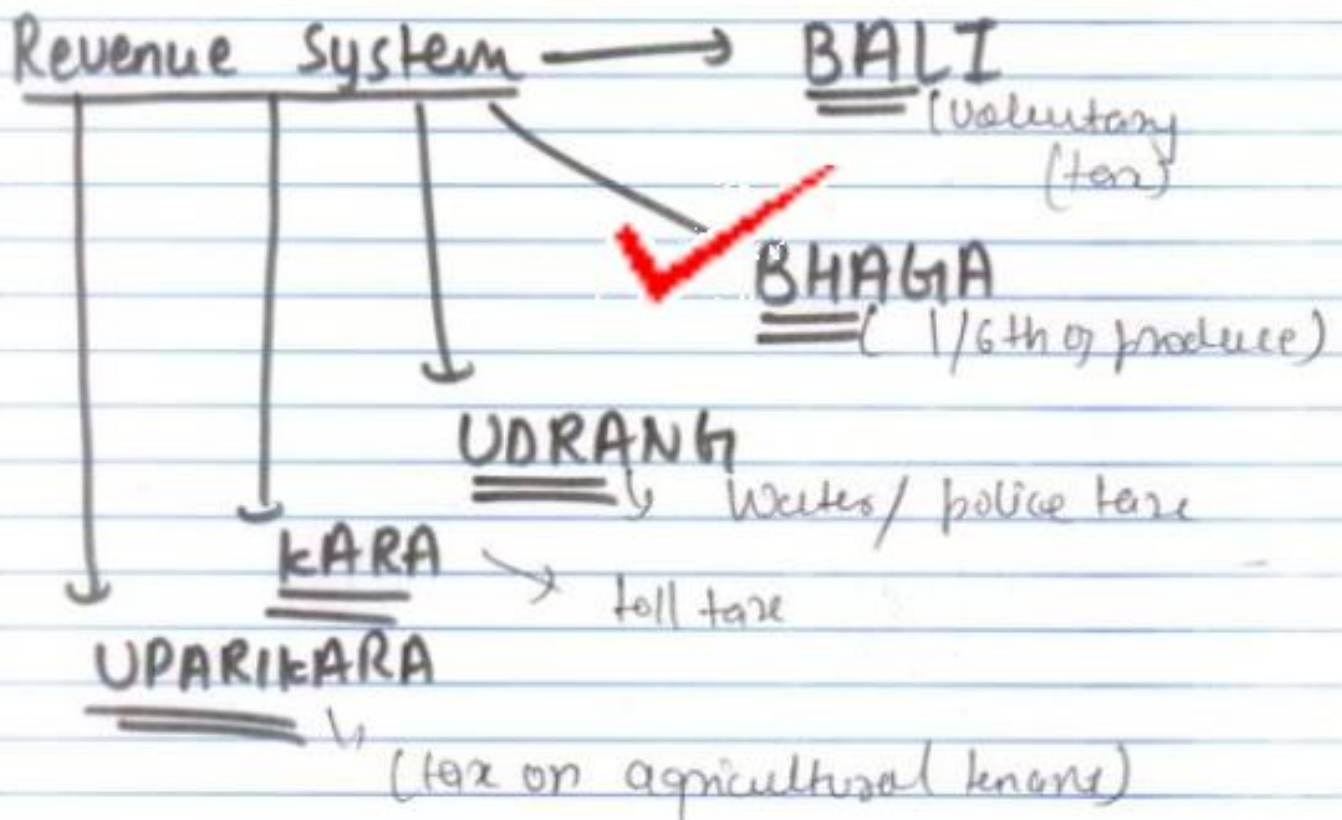 Revenue System → BALI
(voluntary
(tax)
BHAGA
( 1/6th of produce)
UDRANG
↳ Water / police taxe
kARA → toll taxe
UPARIkARA
↳ (tax on agricultural tenans)